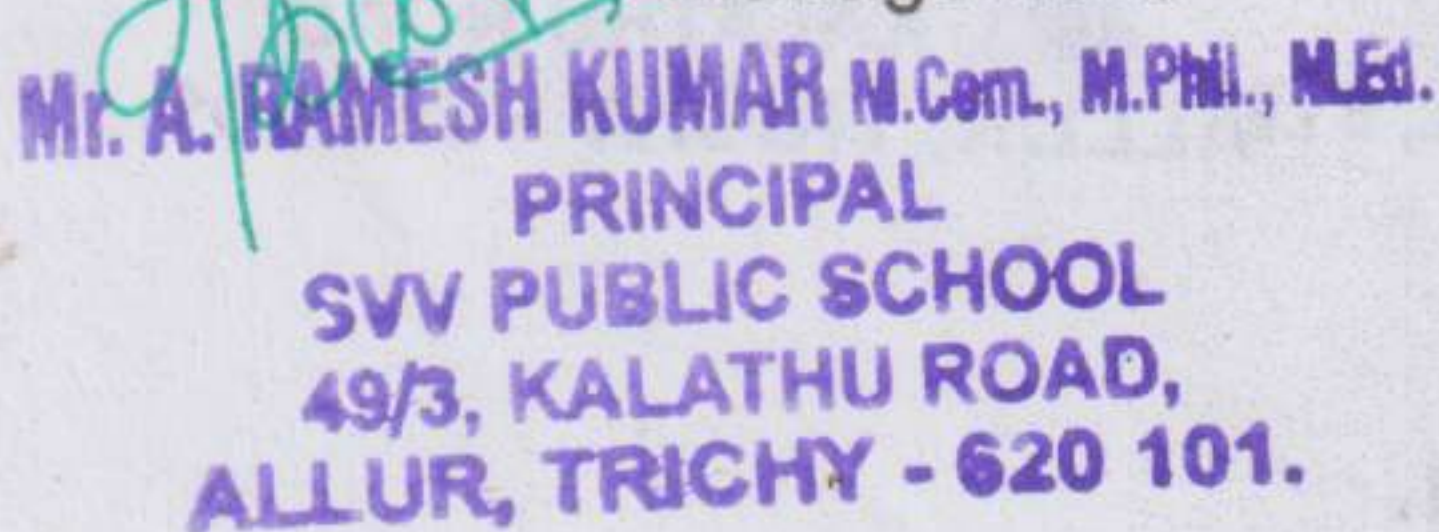 Mr. A. RAMESH KUMAR M.Com., M.Phil., M.Ed.
PRINCIPAL
SVV PUBLIC SCHOOL
49/3, KALATHU ROAD,
ALLUR, TRICHY - 620 101.